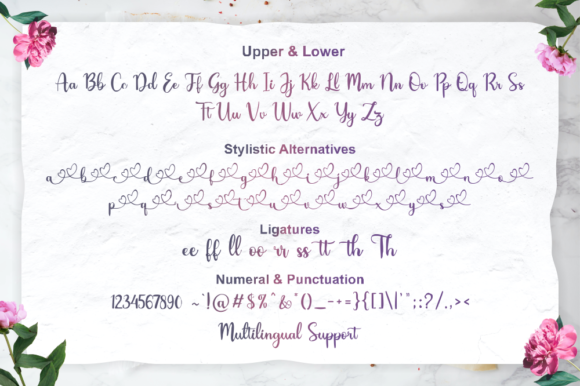 Upper & Lower
Aa Bb Cc Dd Ee Ff Gg Hh Ii Jj Kk Ll Mm Nn Oo Pp Qq Rr Ss
Tt Uu Vv Ww Xx Yy Zz
Stylistic Alternatives
a b c d e f g h i j k l m n o
p q r s t u v w x y s
Ligatures
ee ff ll oo rr ss tt th Th
Numeral & Punctuation
1234567890 ~`!@#$%^&*()_-+=}{[]\|'";:?/.,><
Multilingual Support